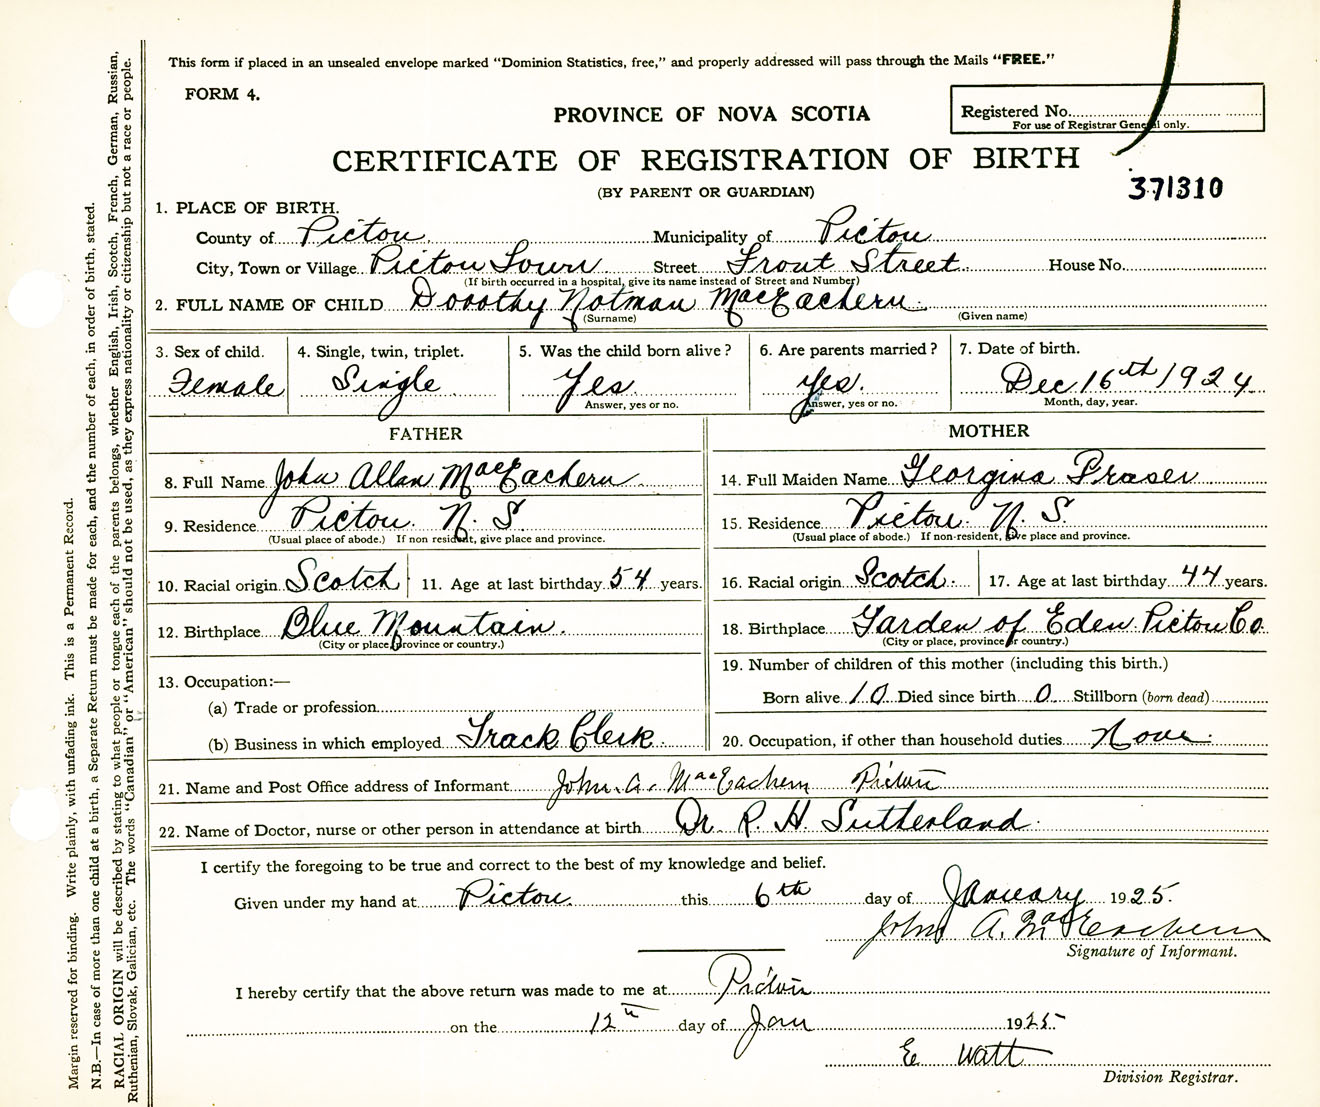 This form if placed in an unsealed envelope marked "Dominion Statistics, free," and properly addressed will pass through the Mails "FREE."
FORM 4.
PROVINCE OF NOVA SCOTIA
Registered No.
For use of Registrar General only.
CERTIFICATE OF REGISTRATION OF BIRTH
(BY PARENT OR GUARDIAN)
371310
1. PLACE OF BIRTH.
County of Pictou Municipality of Pictou
City, Town or Village Pictou Town Street Front Street House No.
(If birth occurred in a hospital, give its name instead of Street and Number)
2. FULL NAME OF CHILD Dorothy Notman MacEachern
(Surname) (Given name)
3. Sex of child. 4. Single, twin, triplet. 5. Was the child born alive? 6. Are parents married? 7. Date of birth.
Female Single Yes. Yes. Dec 16th 1924
Answer, yes or no. Answer, yes or no. Month, day, year.
FATHER MOTHER
8. Full Name John Allan MacEachern 14. Full Maiden Name Georgina Fraser
9. Residence Pictou N. S. 15. Residence Pictou N. S.
(Usual place of abode.) If non resident, give place and province. (Usual place of abode.) If non-resident, give place and province.
10. Racial origin Scotch 11. Age at last birthday 54 years. 16. Racial origin Scotch 17. Age at last birthday 44 years.
12. Birthplace Blue Mountain. 18. Birthplace Garden of Eden Pictou Co.
(City or place, province or country.) (City or place, province or country.)
13. Occupation:— 19. Number of children of this mother (including this birth.)
(a) Trade or profession Born alive 10 Died since birth 0 Stillborn (born dead)
(b) Business in which employed Track Clerk 20. Occupation, if other than household duties None.
21. Name and Post Office address of Informant John. A. MacEachern Pictou
22. Name of Doctor, nurse or other person in attendance at birth Dr. R. H. Sutherland
I certify the foregoing to be true and correct to the best of my knowledge and belief.
Given under my hand at Pictou this 6th day of January 1925.
John A. MacEachern
Signature of Informant.
I hereby certify that the above return was made to me at Pictou
on the 12th day of Jan 1925
E Watt
Division Registrar.
Margin reserved for binding. Write plainly, with unfading ink. This is a Permanent Record.
N.B.—In case of more than one child at a birth, a Separate Return must be made for each, and the number of each, in order of birth, stated.
RACIAL ORIGIN will be described by stating to what people or tongue each of the parents belongs, whether English, Irish, Scotch, French, German, Russian,
Ruthenian, Slovak, Galician, etc. The words "Canadian" or "American" should not be used, as they express nationality or citizenship but not a race or people.